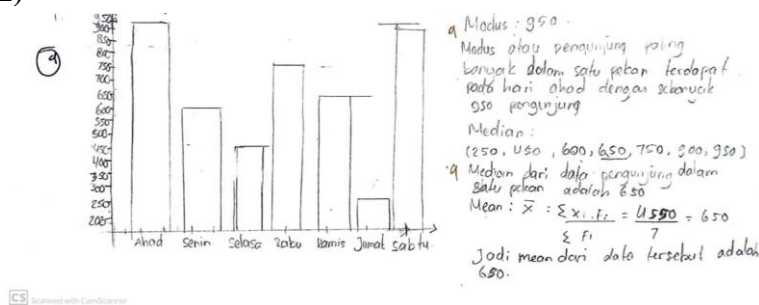 a
950
900
850
800
750
700
650
600
550
500
450
400
350
300
250
200
Ahad Senin Selasa Rabu Kamis Jumat Sabtu
a Modus : 950.
Modus atau pengunjung paling
banyak dalam satu pekan terdapat
pada hari ahad dengan sebanyak
950 pengunjung
Median :
(250, 450, 600, 650, 750, 900, 950)
a Median dari data pengunjung dalam
satu pekan adalah 650
Mean : x̄ : Σ xi.fi / Σ fi = 4550 / 7 = 650
Jadi mean dari data tersebut adalah
650.
CS Scanned with CamScanner